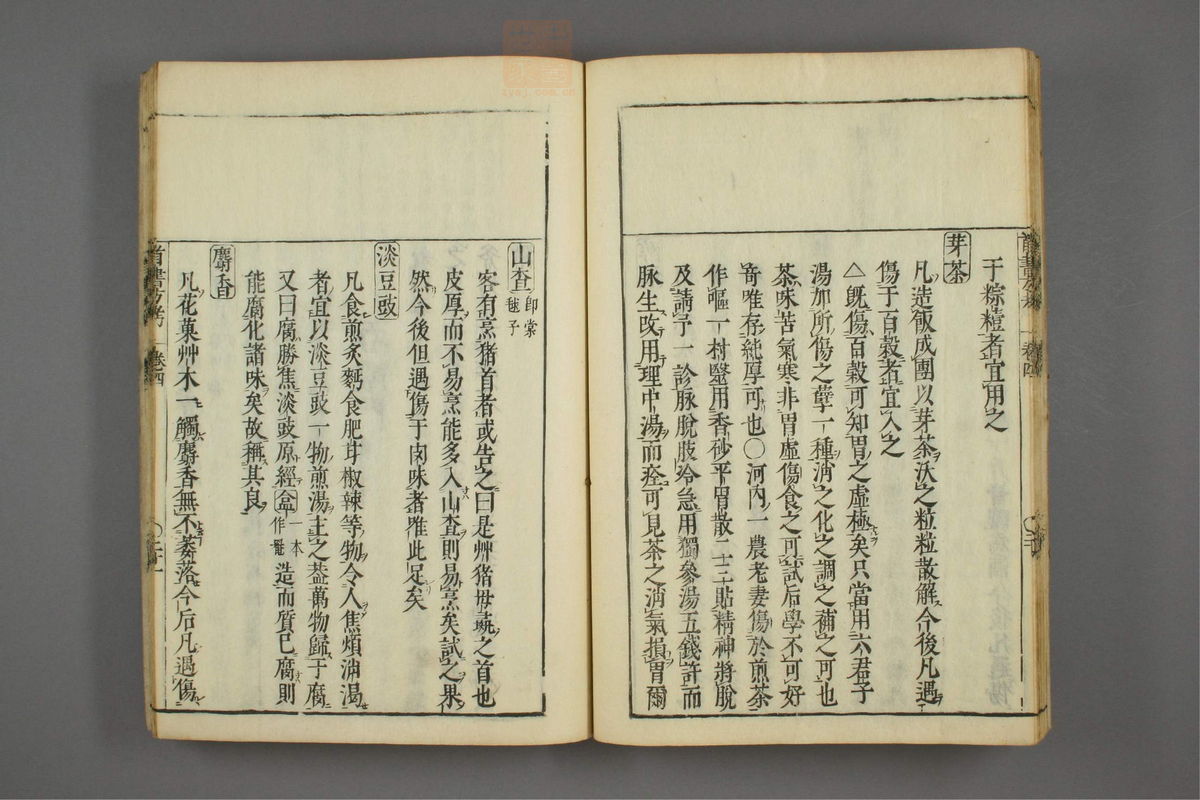 于粽𥻦者宜用之
芽茶
凡造飯成團以芽茶沃之粒粒散解今後凡遇
傷于百穀者宜入之
△既傷百穀可知胃之虛極矣只當用六君子
湯加所傷之孽一種消之化之調之補之可也
茶味苦氣寒非胃虛傷食之可試后學不可好
奇唯存純厚可也〇河內一農老妻傷於煎茶
作嘔一村毉用香砂平胃散二三貼精神將脫
及請予一診脉脫肢冷急用獨參湯五錢許而
脉生改用理中湯而痊可見茶之消氣損胃爾
山查 即棠毬子
客有烹猪首者或告之曰是艸猪毋彘之首也
皮厚而不易烹能多入山查則易烹矣試之果
然今後但遇傷于肉味者唯此足矣
淡豆豉
凡食煎炙麪食肥甘椒辣等物令人焦煩消渴
者宜以淡豆豉一物煎湯主之盖萬物歸于腐
又曰腐勝焦淡豉原經盒 一本作 造而質已腐則
能腐化諸味矣故稱其良
麝香
凡花菓艸木一觸麝香無不萎落今后凡遇傷
首書方考 卷四 〇二十一